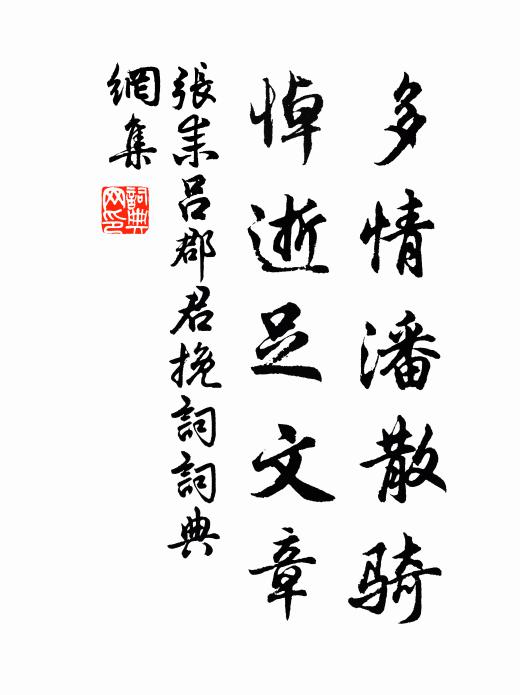 多情潘散骑
悼逝足文章
張耒呂郡君挽詞詞典
網集
詞典
网印